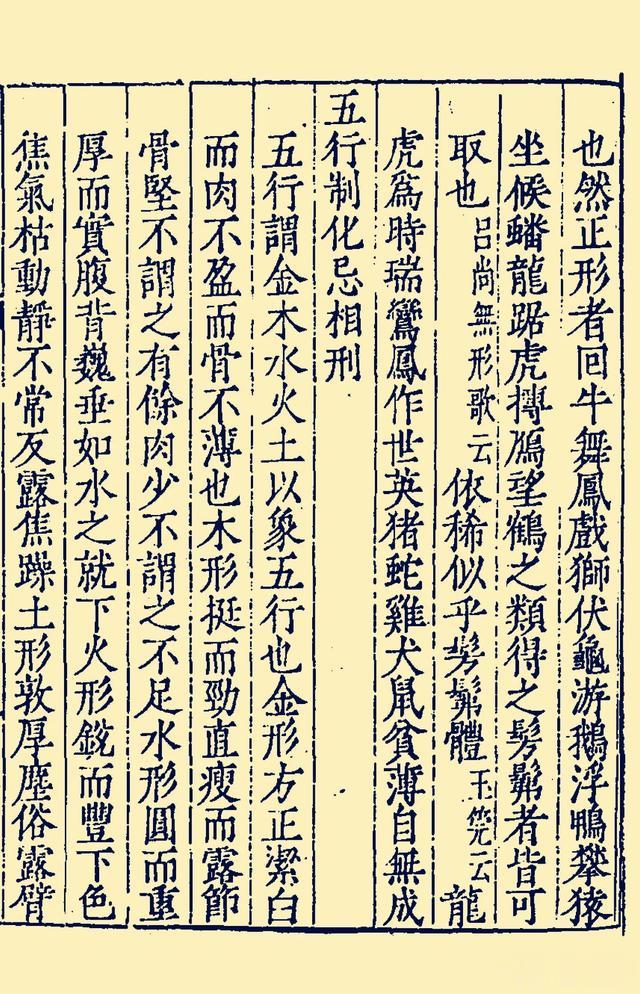 也然正形者回牛舞鳳戲獅伏龜游鵝浮鴨攀猿
坐候蟠龍踞虎摶鴈望鶴之類得之髣髴者皆可
取也吕尚無形歌云依稀似乎髣髴體玉筦云龍
虎爲時瑞鸞鳳作世英猪蛇雞犬鼠貧薄自無成
五行制化忌相刑
五行謂金木水火土以象五行也金形方正潔白
而肉不盈而骨不薄也木形挺而勁直瘦而露節
骨堅不謂之有餘肉少不謂之不足水形圓而重
厚而實腹背巍垂如水之就下火形銳而豐下色
焦氣枯動靜不常反露焦躁土形敦厚塵俗露臂